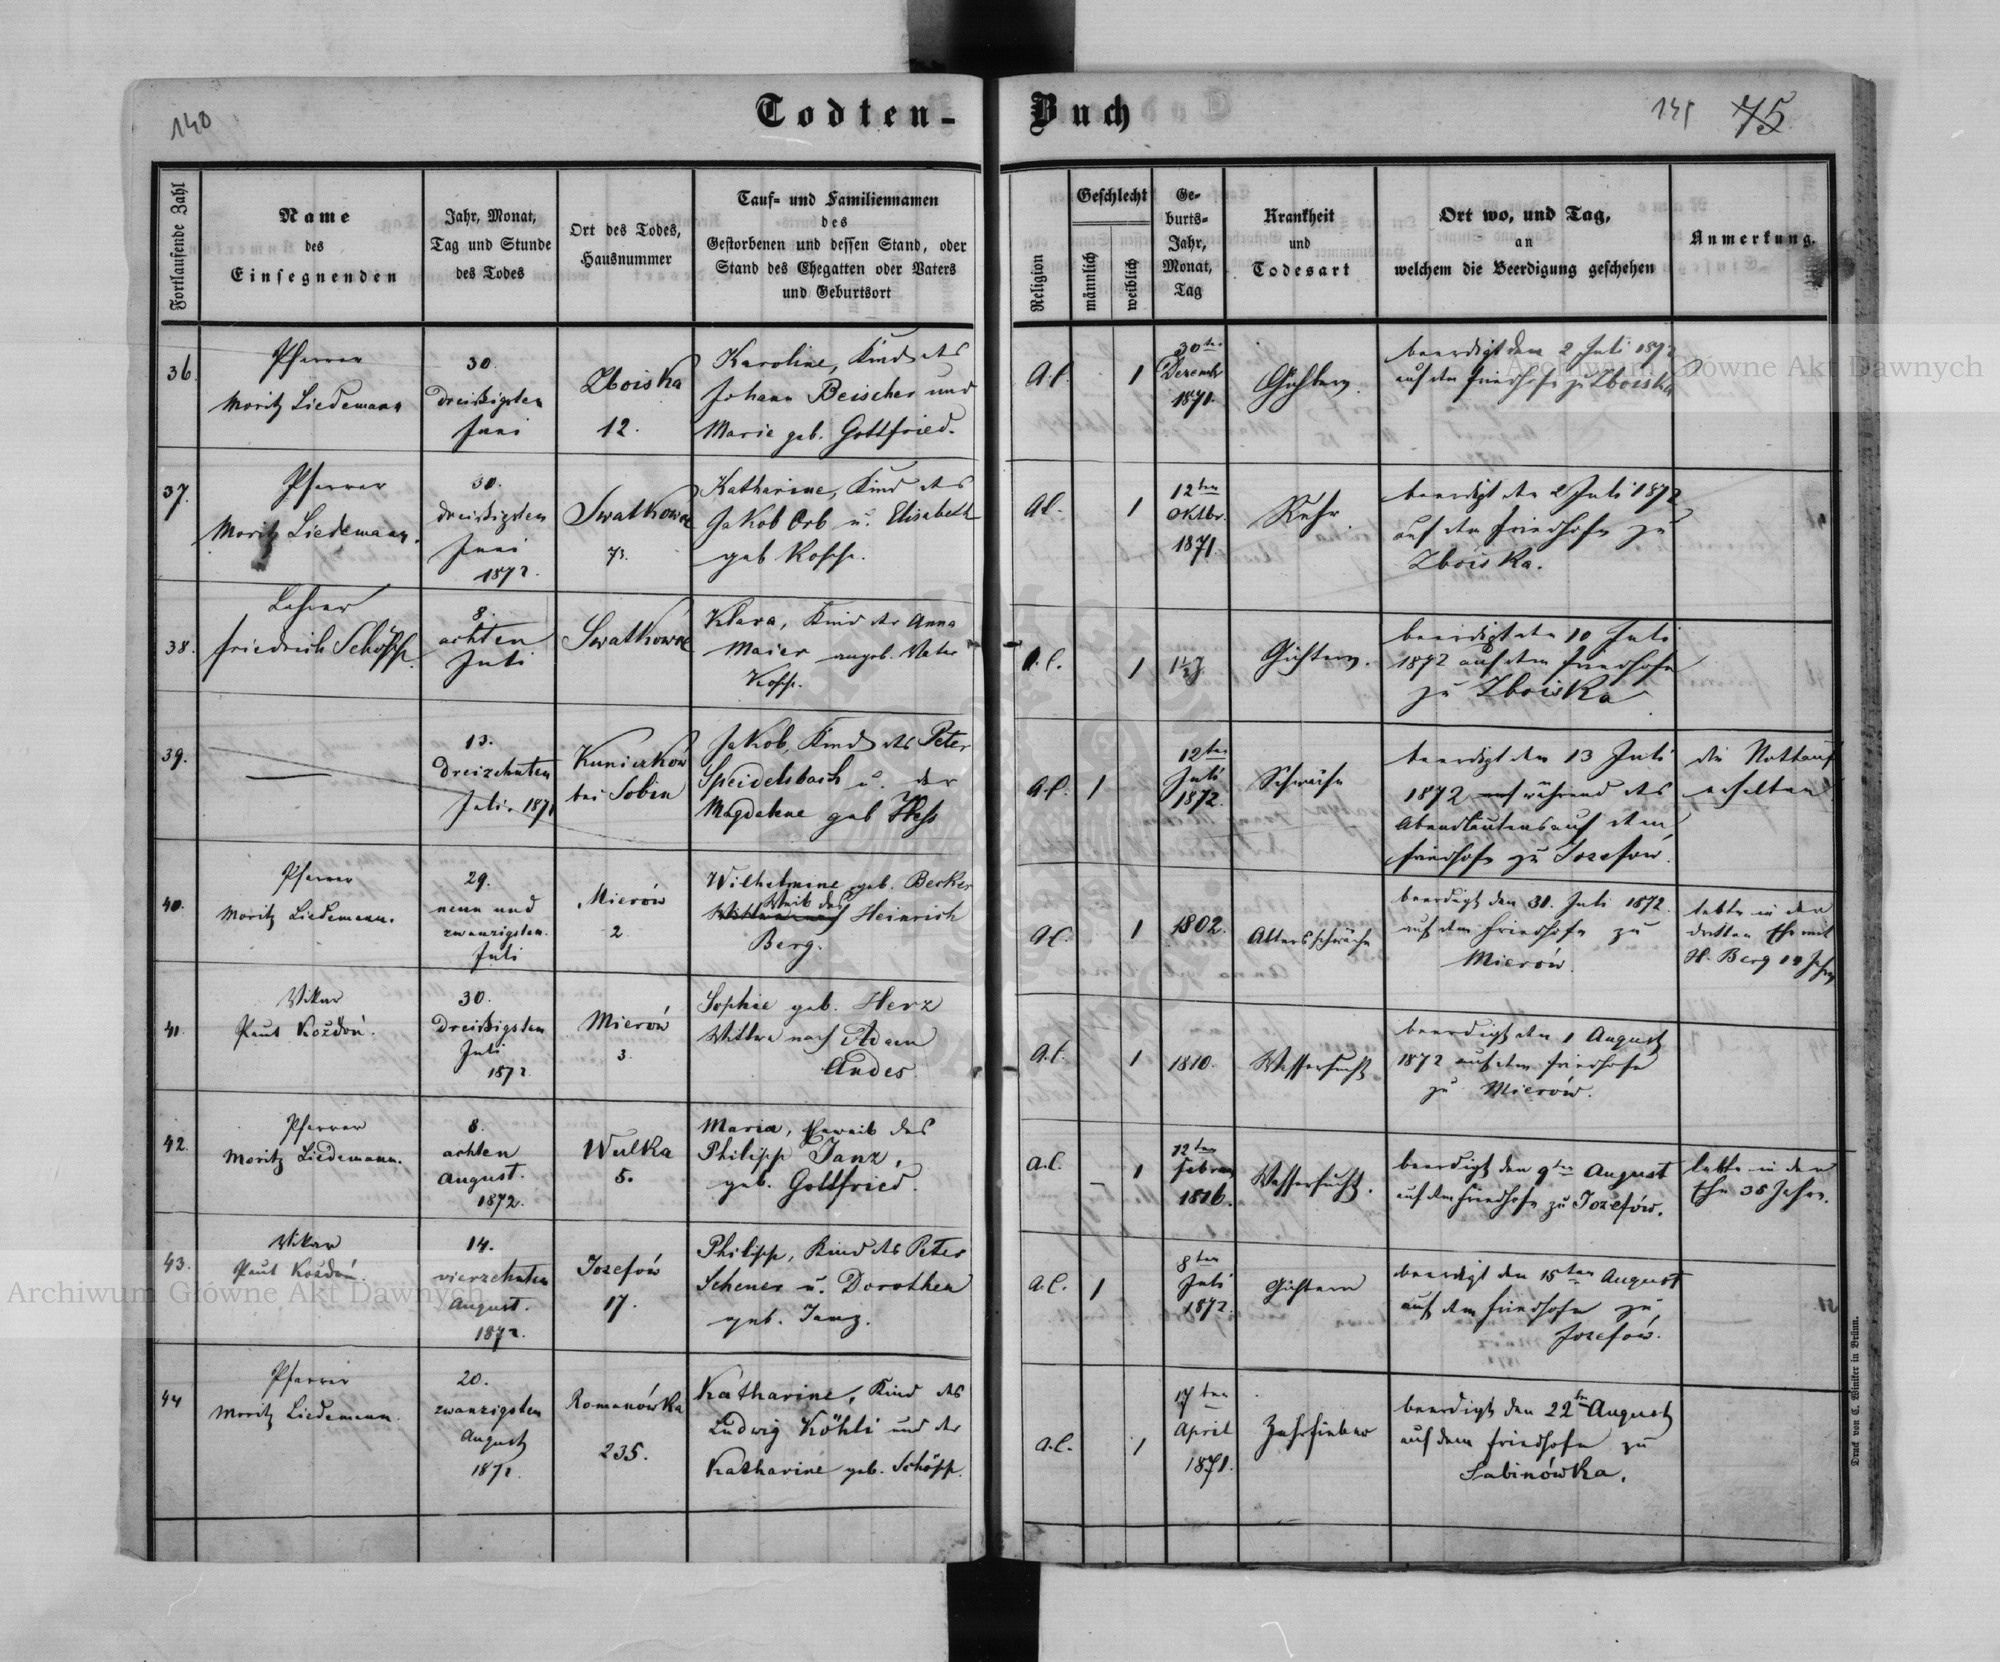 140
Todten-
Buch
145 75
Fortlaufende Zahl
Name
des
Einsegnenden
Jahr, Monat,
Tag und Stunde
des Todes
Ort des Todes,
Hausnummer
Tauf- und Familiennamen
des
Gestorbenen und dessen Stand, oder
Stand des Ehegatten oder Vaters
und Geburtsort
Religion
Geschlecht
männlich
weiblich
Ge-
burts-
Jahr,
Monat,
Tag
Krankheit
und
Todesart
Ort wo, und Tag,
an
welchem die Beerdigung geschehen
Anmerkung.
36.
Pfarrer
Moritz Liedemann
30.
dreißigsten
Juni
Zboiska
12.
Karoline, Kind des
Johann Beischer und
Marie geb. Gottfried.
A.C.
1
30ten
Dezemb
1871.
Gichtern.
beerdigt den 2 Juli 1872
auf dem Friedhofe zu Zboiska
37.
Pfarrer
Moritz Liedemann.
30.
dreißigsten
Juni
1872.
Swatkowce
73.
Katharine, Kind des
Jakob Orb u. Elisabeth
geb Kopp.
A.C.
1
12ten
Oktbr.
1871.
Ruhr.
beerdigt den 2 Juli 1872
auf dem Friedhofe zu
Zboiska.
38.
Lehrer
Friedrich Schöpp.
8.
achten
Juli
Swatkowce
Klara, Kind der Anna
Maier angeb. Vater
Kopp.
A.C.
1
Gichtern.
beerdigt den 10 Juli
1872 auf dem Friedhofe
zu Zboiska
39.
13.
dreizehnten
Juli. 1872
Kuniczkow
bei Sobin
Jakob, Kind des Peter
Speidelsbach u. der
Magdalene geb Hess
A.C.
1
12ten
Juli
1872.
Schwäche
beerdigt den 13 Juli
1872 während des
Abendlautens auf dem
Friedhofe zu Jozefów.
die Nottauf
erhalten
40.
Pfarrer
Moritz Liedemann.
29.
neun und
zwanzigsten.
Juli
Mierów
2
Wilhelmine geb. Becker
Weib des
Wittwe nach Heinrich
Berg.
A.C.
1
1802.
Altersschwäche
beerdigt den 31. Juli 1872.
auf dem Friedhofe zu
Mierów.
lebte in der
dritten Ehe mit
H. Berg 14 Jahre
41.
Vikar
Paul Kozdoń.
30.
Dreißigsten
Juli
1872
Mierów
3.
Sophie geb. Herz
Wittwe nach Adam
Andes
A.C.
1
1810.
Wassersucht
beerdigt den 1 August
1872 auf dem Friedhofe
zu Mierów.
42.
Pfarrer
Moritz Liedemann.
8.
achten
August.
1872.
Wulka
5.
Maria, Eheweib des
Philipp Janz,
geb. Gottfried.
A.C.
1
12ten
Februar
1816.
Wassersucht.
beerdigt den 9ten August
auf dem Friedhofe zu Jozefów.
lebte in der
Ehe 35 Jahre.
43.
Vikar
Paul Kozdoń.
14.
vierzehnten
August.
1872.
Jozefów
17.
Philipp, Kind des Peter
Scheuer u. Dorothea
geb. Janz.
A.C.
1
8ten
Juli
1872.
Gichtern
beerdigt den 15ten August
auf dem Friedhofe zu
Jozefów.
44
Pfarrer
Moritz Liedemann.
20.
zwanzigsten
August
1872.
Romanówka
235.
Katharine, Kind des
Ludwig Köhli und der
Katharine geb. Schöpp.
A.C.
1
17ten
April
1871.
Zehrfieber
beerdigt den 22ten August
auf dem Friedhofe zu
Sabinówka.
Druck von C. Winiker in Brünn.
Archiwum Główne Akt Dawnych
Archiwum Główne Akt Dawnych